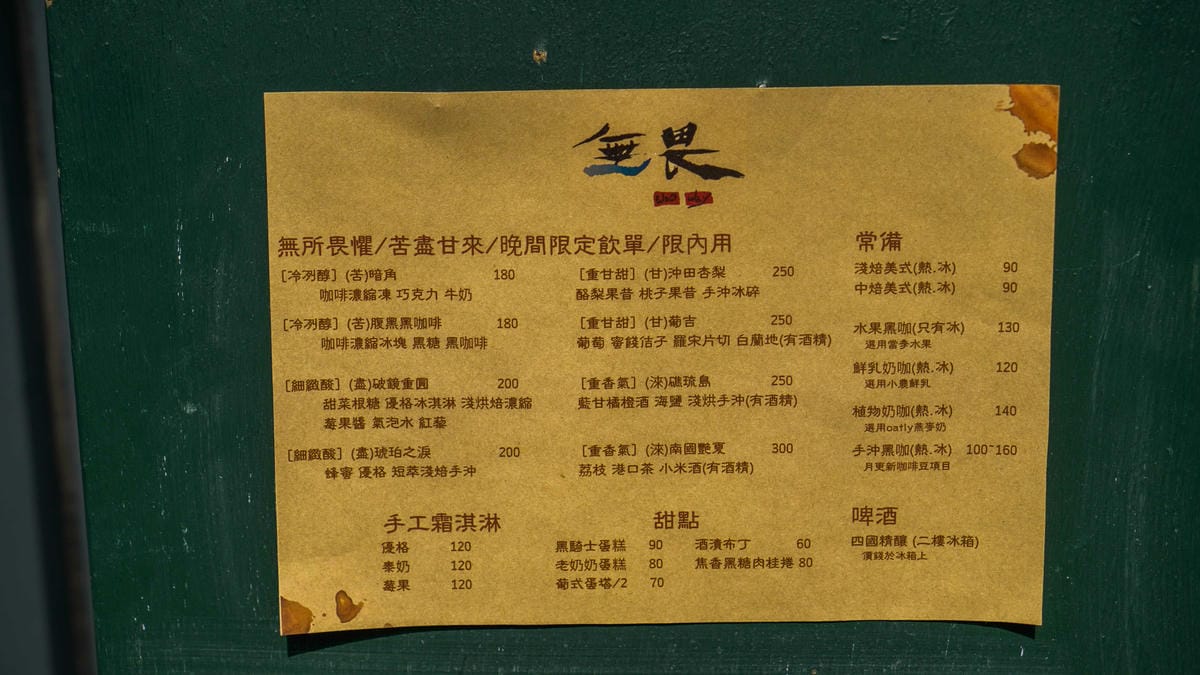 無畏
無所畏懼/苦盡甘來/晚間限定飲單/限內用
[冷冽醇] (苦)暗角 180
咖啡濃縮凍 巧克力 牛奶
[冷冽醇] (苦)腹黑黑咖啡 180
咖啡濃縮冰塊 黑糖 黑咖啡
[細緻酸] (盡)破鏡重圓 200
甜菜根糖 優格冰淇淋 淺烘焙濃縮
莓果醬 氣泡水 紅藜
[細緻酸] (盡)琥珀之淚 200
蜂蜜 優格 短萃淺焙手沖
[重甘甜] (甘)沖田杏梨 250
酪梨果昔 桃子果昔 手沖冰碎
[重甘甜] (甘)葡吉 250
葡萄 蜜餞佶子 羅宋片切 白蘭地(有酒精)
[重香氣] (淶)礁琉島 250
藍甘橘橙酒 海鹽 淺烘手沖(有酒精)
[重香氣] (淶)南國艷夏 300
荔枝 港口茶 小米酒(有酒精)
常備
淺焙美式(熱.冰) 90
中焙美式(熱.冰) 90
水果黑咖(只有冰) 130
選用當季水果
鮮乳奶咖(熱.冰) 120
選用小農鮮乳
植物奶咖(熱.冰) 140
選用oatly燕麥奶
手沖黑咖(熱.冰) 100~160
月更新咖啡豆項目
手工霜淇淋
優格 120
泰奶 120
莓果 120
甜點
黑騎士蛋糕 90
老奶奶蛋糕 80
葡式蛋塔/2 70
酒漬布丁 60
焦香黑糖肉桂捲 80
啤酒
四國精釀 (二樓冰箱)
價錢於冰箱上